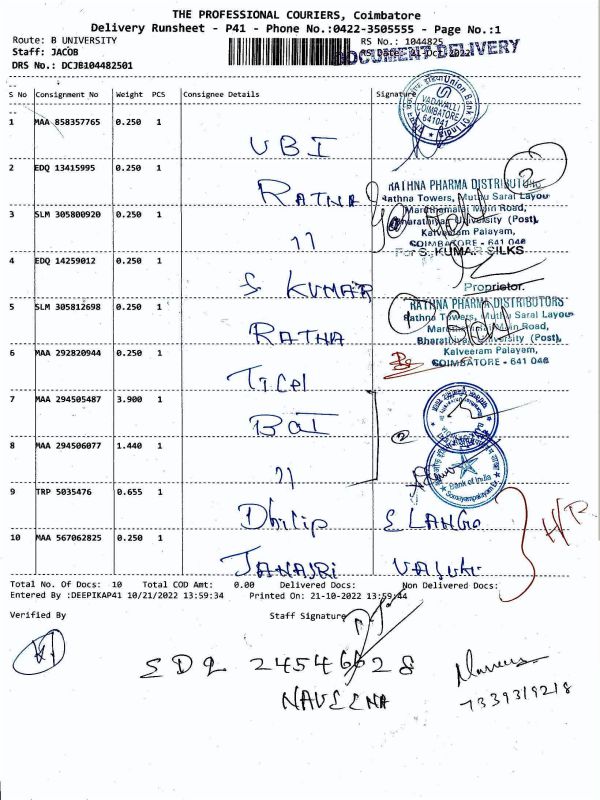 THE PROFESSIONAL COURIERS, Coimbatore
Delivery Runsheet - P41 - Phone No.:0422-3505555 - Page No.:1
Route: B UNIVERSITY
RS No.: 1044825
Staff: JACOB
21-Oct-2022
DOCUMENT DELIVERY
DRS No.: DCJB104482501
S No Consignment No Weight PCS Consignee Details Signature
1 MAA 858357765 0.250 1 UBI
Union Bank Of India
VADAVALLI
COIMBATORE
641041
2 EDQ 13415995 0.250 1 RATNA
2
RATHNA PHARMA DISTRIBUTORS
Rathna Towers, Muthu Saral Layout
Maruthamalai Main Road,
Bharathiyar University (Post),
Kalveeram Palayam,
COIMBATORE - 641 046
3 SLM 305800920 0.250 1 11
For S. KUMAR SILKS
Proprietor.
4 EDQ 14259012 0.250 1 S KUMAR
5 SLM 305812698 0.250 1 RATNA
1
RATHNA PHARMA DISTRIBUTORS
Rathna Towers, Muthu Saral Layout
Maruthamalai Main Road,
Bharathiyar University (Post),
Kalveeram Palayam,
COIMBATORE - 641 046
6 MAA 292820944 0.250 1
7 MAA 294505487 3.900 1 BOI
8 MAA 294506077 1.440 1 11
2
Bank of India
9 TRP 5035476 0.655 1 Dhilip ELANGO
10 MAA 567062825 0.250 1 JANASRI VASUKI
Total No. Of Docs: 10 Total COD Amt: 0.00 Delivered Docs: Non Delivered Docs:
Entered By :DEEPIKAP41 10/21/2022 13:59:34 Printed On: 21-10-2022 13:59:44
Verified By Staff Signature
EDQ 24546628
NAVEENA
7339319218